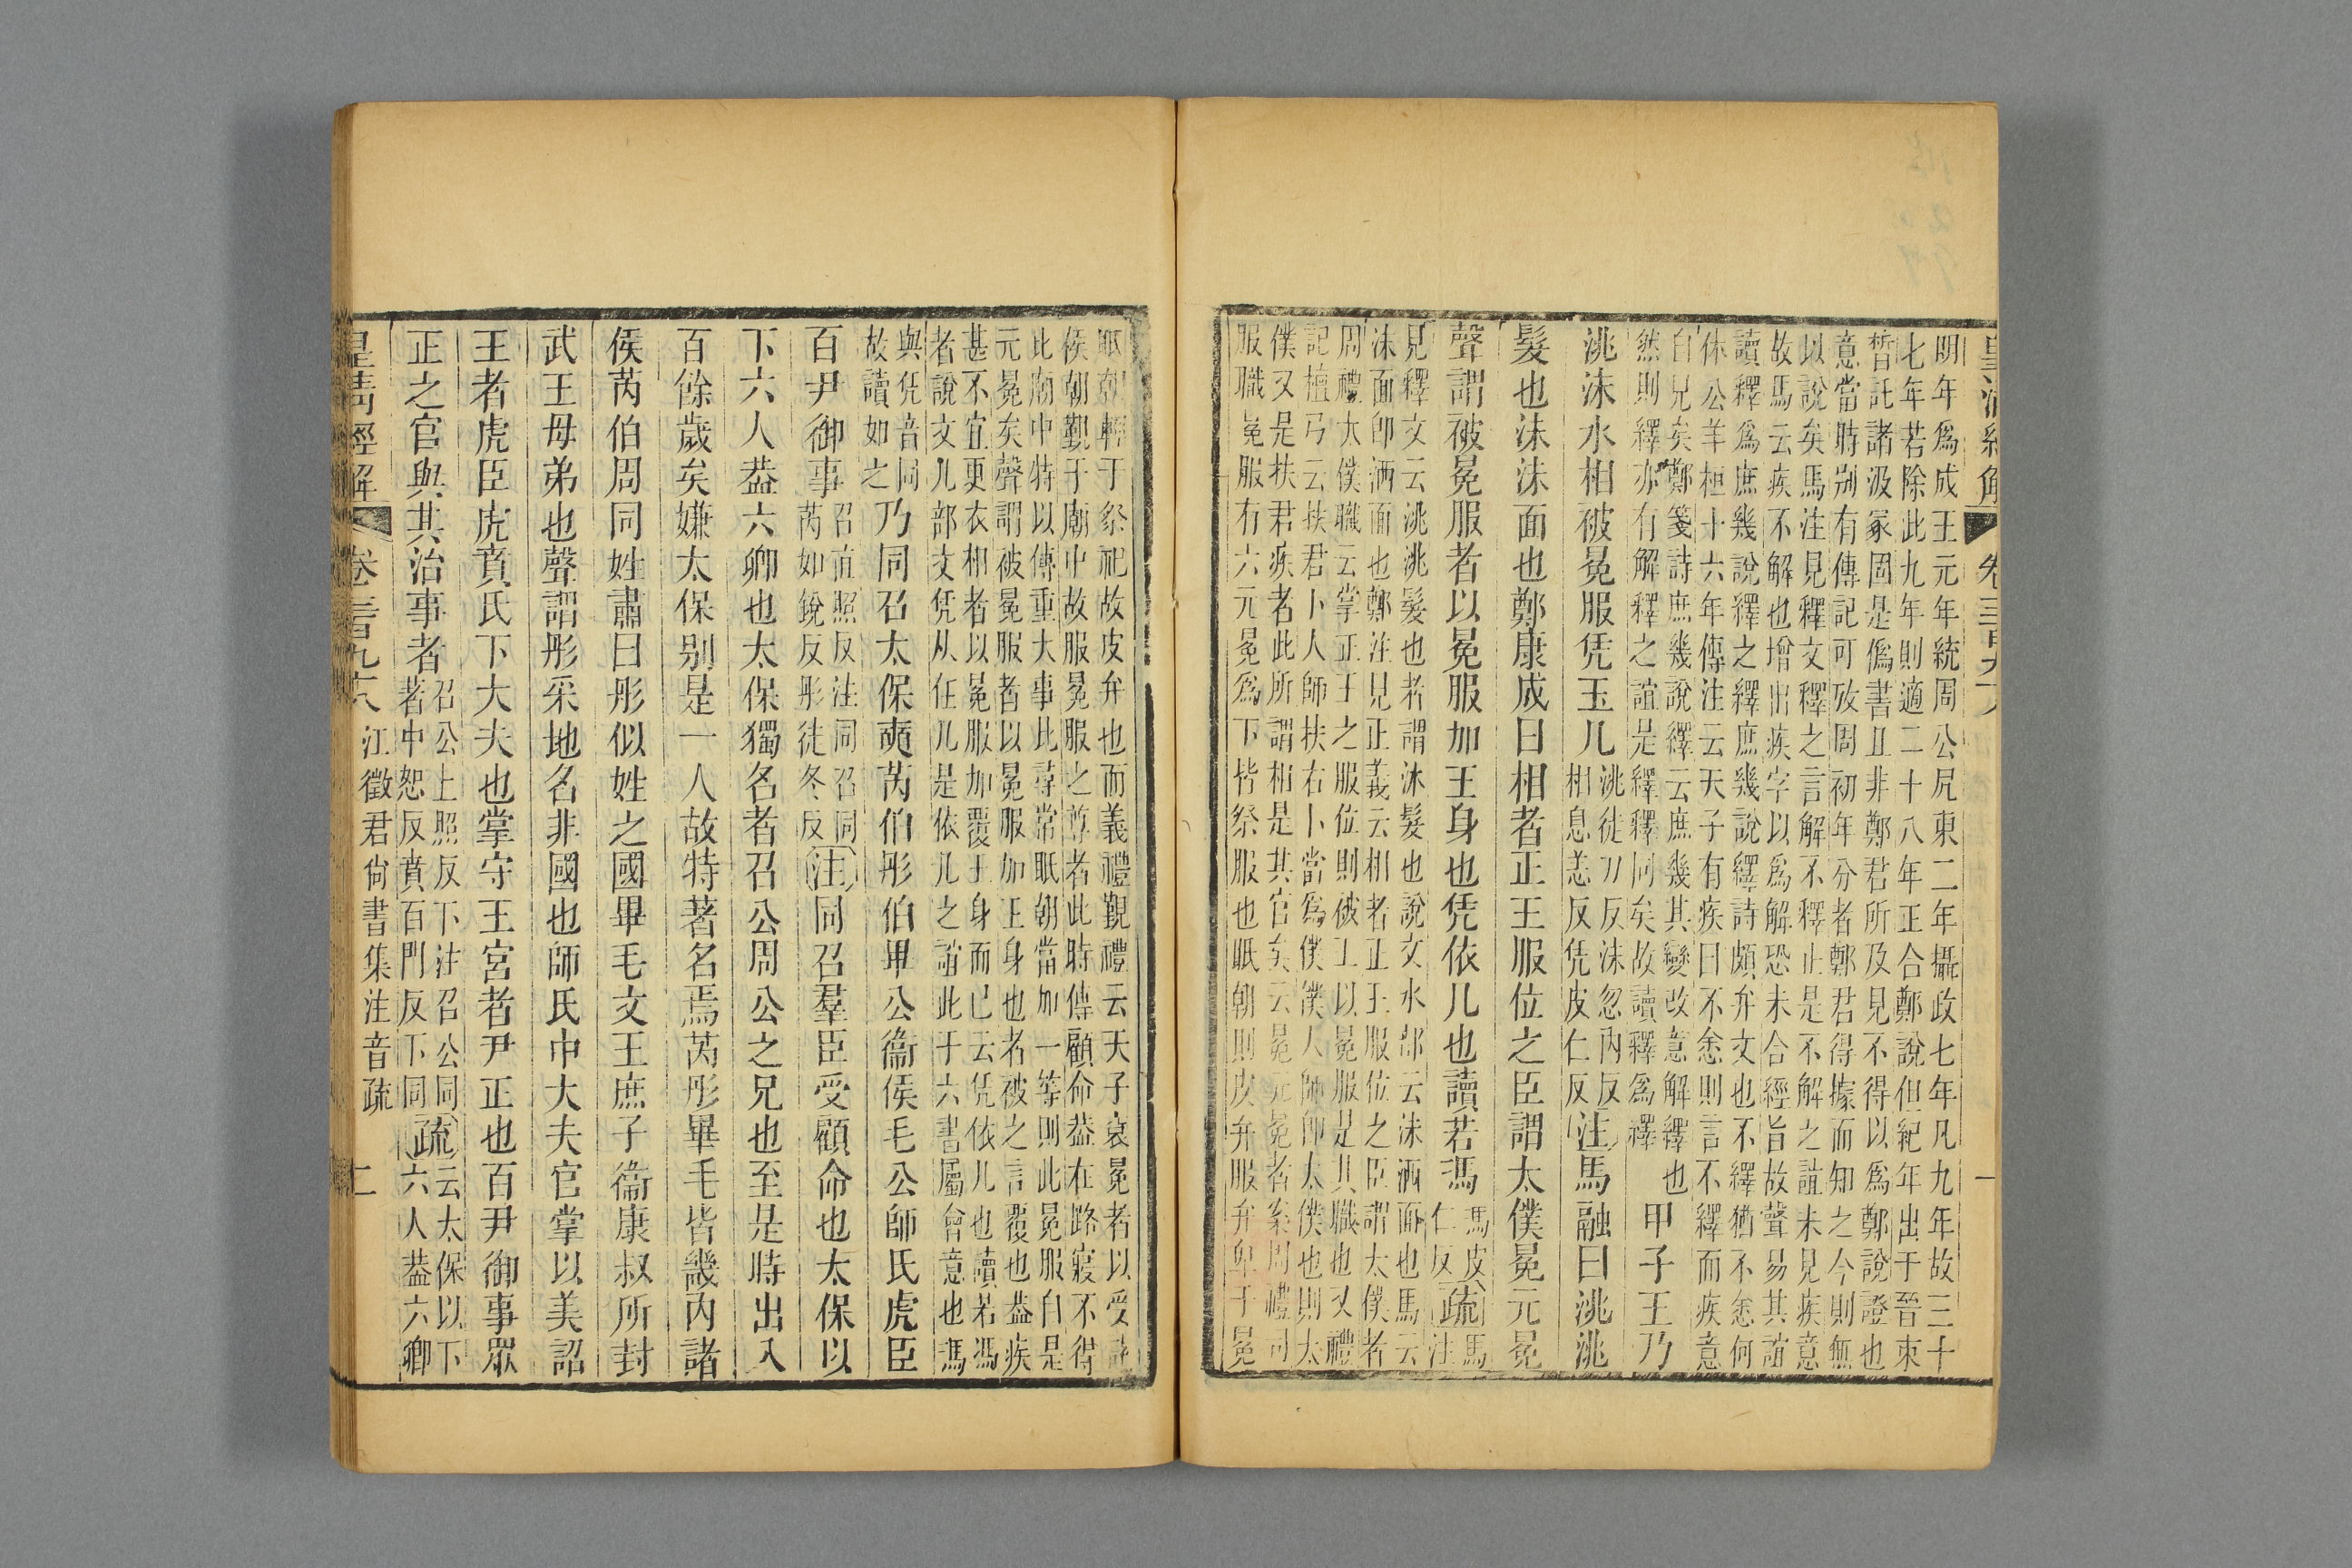 明年爲成王元年統周公凥東二年攝政七年凡九年故三十
七年若除此九年則適二十八年正合鄭說但紀年出于晉束
晳託諸汲冢固是僞書且非鄭君所及見不得以爲鄭說證也
意當時別有傳記可攷周初年分者鄭君得據而知之今則無
以說矣馬注見釋文釋之言解不釋止是不解之誼未見疾意
故馬云疾不解也增出疾字以爲解恐未合經旨故聲易其誼
讀釋爲庶幾說繹之繹庶幾說繹詩頍弁文也不繹猶不悆何
休公羊桓十六年傳注云天子有疾曰不悆則言不繹而疾意
自見矣鄭箋詩庶幾說繹云庶幾其變改意解繹也
然則繹亦有解釋之誼是繹釋同矣故讀釋爲繹
甲子王乃
洮沬水相被冕服凭玉几
洮徒刀反沬忽內反
相息恙反凭皮仁反
注馬融曰洮洮
髮也沬沬面也鄭康成曰相者正王服位之臣謂太僕冕元冕
聲謂被冕服者以冕服加王身也凭依几也讀若馮
馮皮
仁反
疏
馬
注
見釋文云洮洮髮也者謂沐髮也說文水部云沬洒面也馬云
沬面卽洒面也鄭注見正義云相者正王服位之臣謂太僕者
周禮太僕職云掌正王之服位則被王以冕服是其職也又禮
記檀弓云扶君卜人師扶右卜當爲僕僕人師卽太僕也則太
僕又是扶君疾者此所謂相是其官矣云冕元冕者案周禮司
服職冕服有六元冕爲下皆祭服也眂朝則皮弁服弁卑于冕
眂朝輕于祭祀故皮弁也而義禮覲禮云天子袞冕者以受
矦朝覲于廟中故服冕服之尊者此時傳顧命葢在路寢不得
比廟中特以傳重大事此尋常眂朝當加一等則此冕服自是
元冕矣聲謂被冕服者以冕服加王身也者被之言覆也葢疾
甚不宜更衣相者以冕服加覆王身而已云凭依几也讀若馮
者說文几部文凭从任几是依几之誼此于六書屬會意也馮
與凭音同
故讀如之
乃同召太保奭芮伯彤伯畢公衞侯毛公師氏虎臣
百尹御事
召直照反注同召同
芮如銳反彤徒冬反
注同召羣臣受顧命也太保以
下六人葢六卿也太保獨名者召公周公之兄也至是時出入
百餘歲矣嫌太保別是一人故特著名焉芮彤畢毛皆畿內諸
侯芮伯周同姓肅曰彤似姓之國畢毛文王庶子衞康叔所封
武王母弟也聲謂彤采地名非國也師氏中大夫官掌以美詔
王者虎臣虎賁氏下大夫也掌守王宮者尹正也百尹御事眾
正之官與其治事者
召公上照反下注召公同
著中恕反賁百門反下同
疏
云太保以下
六人葢六卿
皇清經解
卷三百九十八
江徵君尙書集注音疏
二